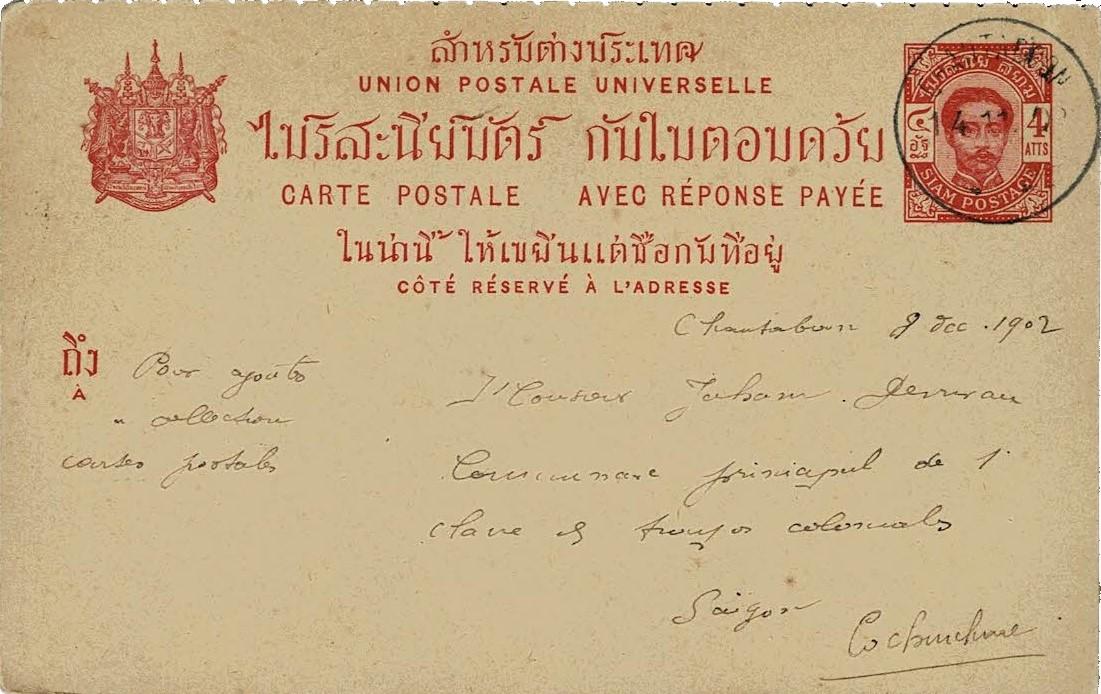 สำหรับต่างประเทศ
UNION POSTALE UNIVERSELLE
ไปรสะนียบัตร์ กับใบตอบด้วย
CARTE POSTALE AVEC RÉPONSE PAYÉE
ไปรสนีย์ สยาม
๔ อัฐ
4 ATTS
SIAM POSTAGE
ในน่านี้ ให้เขยีนแต่ชื่อกับที่อยู่
CÔTÉ RÉSERVÉ À L'ADRESSE
ถึง
À
Chantaboun 8 dec. 1902
Pour ajouter
collection
cartes postales
Monsieur Jaham
Commissaire principal de 1
classe des troupes coloniales
Saigon
Cochinchine